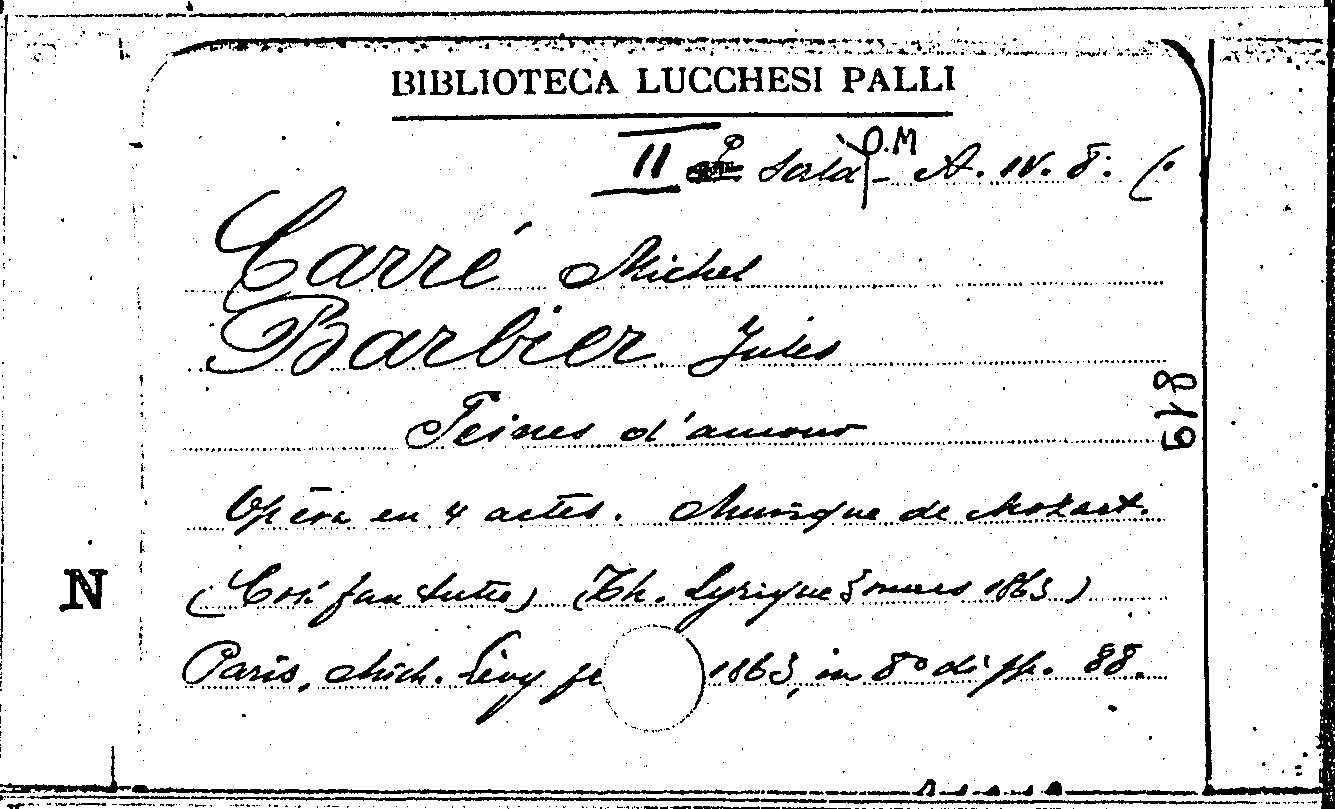 BIBLIOTECA LUCCHESI PALLI
II Sala P.M - A. IV. 8. (.
Carré Michel
Barbier Jules
Peines d'amour
Opéra en 4 actes. Musique de Mozart.
(Cosi fan tutte) (Th. Lyrique 3 mars 1863)
Paris, Mich. Lévy fr 1863, in 8° di pp. 88.
N
819